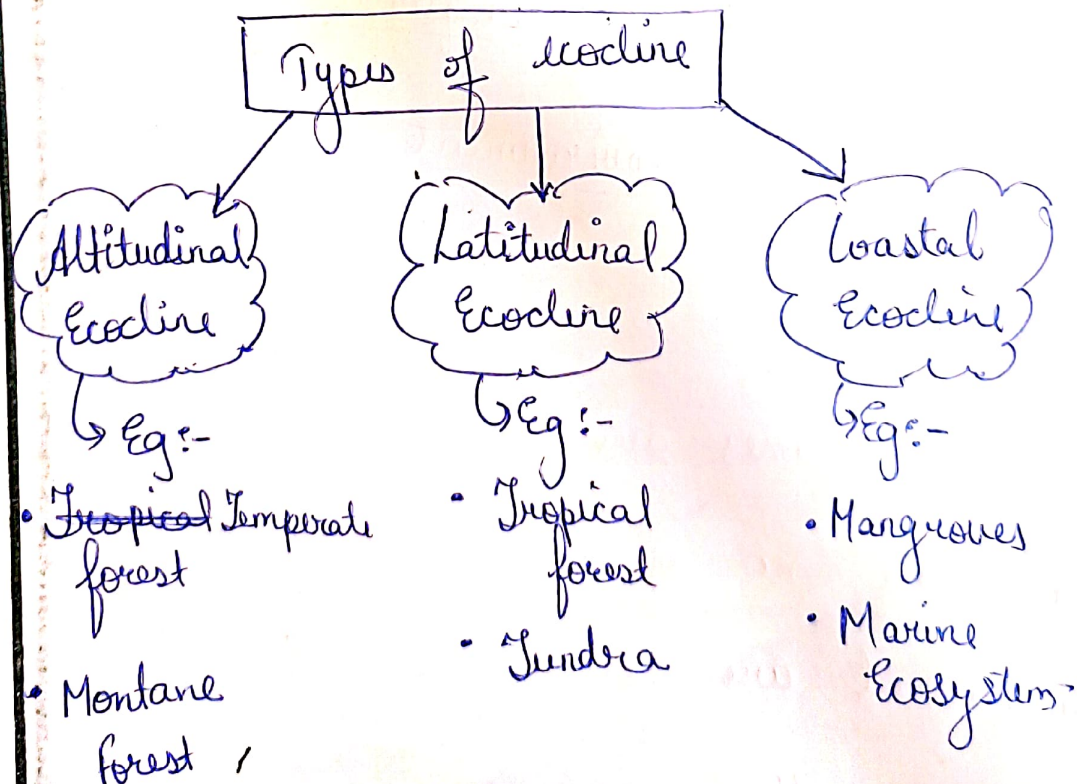 Types of ecocline
Altitudinal
Ecocline
Eg :-
• ~~Tropical~~ Temperate
forest
• Montane
forest
Latitudinal
Ecocline
Eg :-
• Tropical
forest
• Tundra
Coastal
Ecocline
Eg :-
• Mangroves
• Marine
Ecosystem